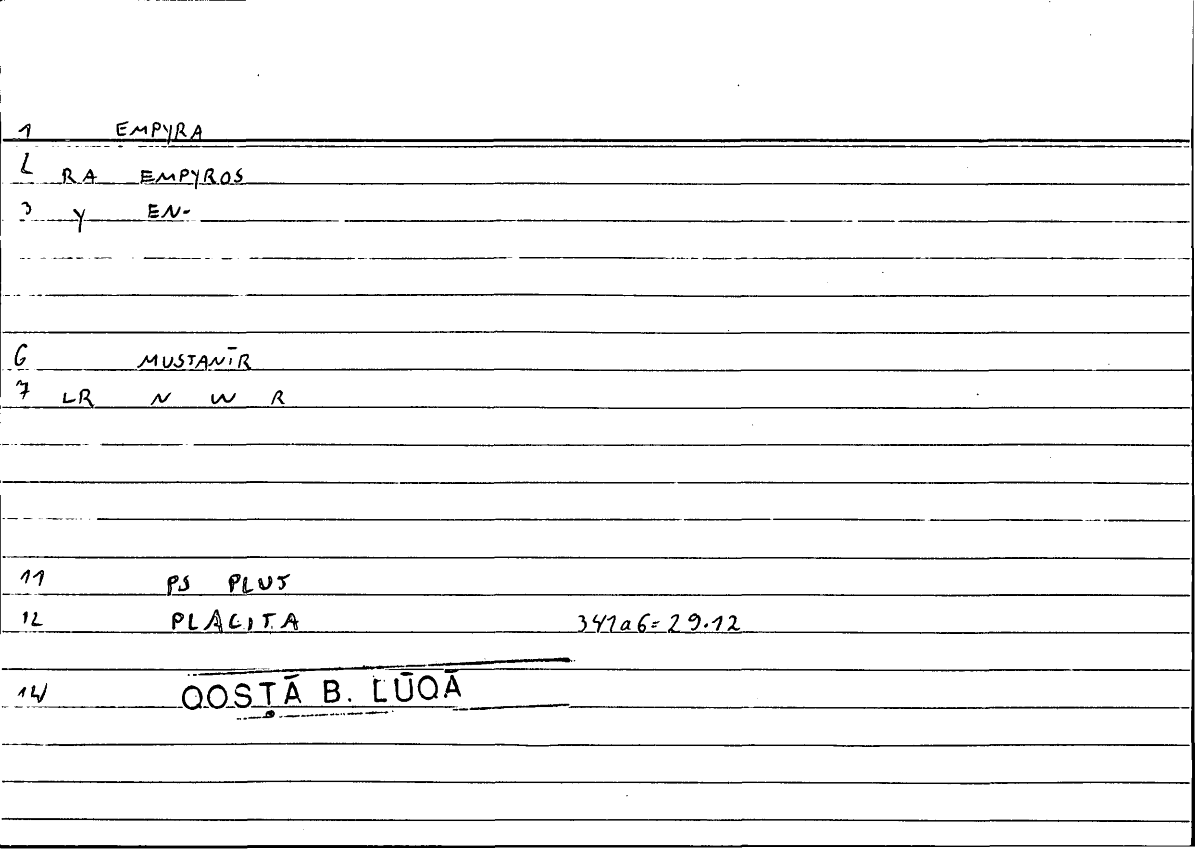 1 EMPYRA
2 RA EMPYROS
3 Y EN-
6 MUSTANĪR
7 LR N W R
11 PS PLUT
12 PLACITA 341a6=29.12
14 QOSṬĀ B. LŪQĀ